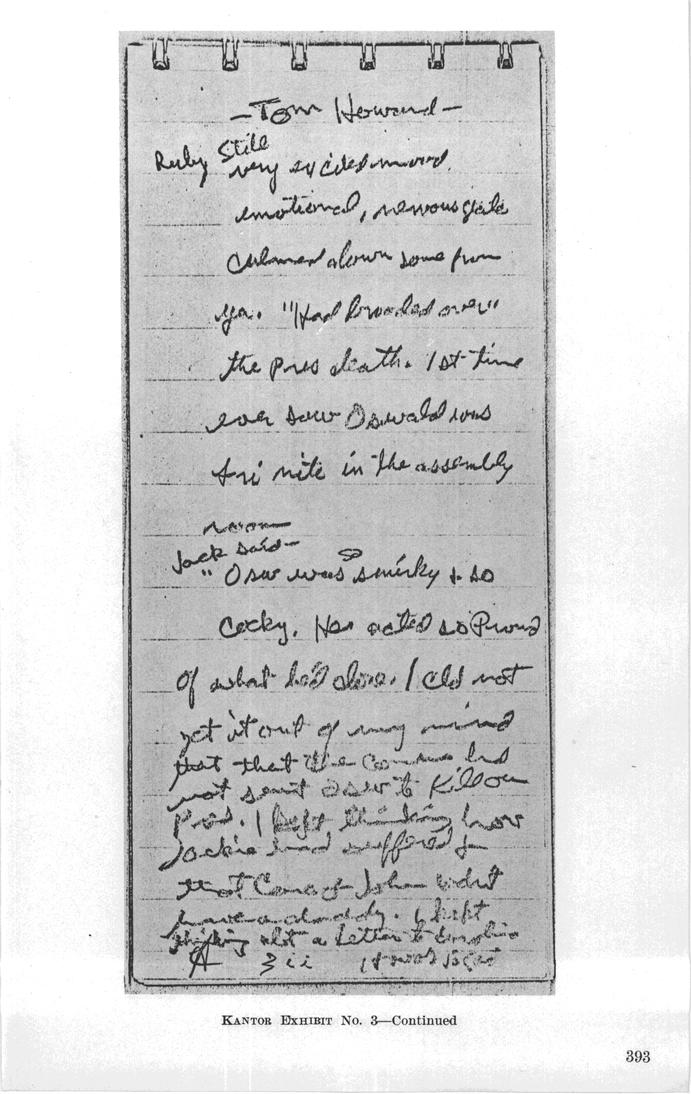 —Tom Howard—
Ruby Still
very excited mood,
emotional, nervous
Calmed down some from
yes. "Had brooded over"
the Pres death. 1st time
ever saw Oswald was
fri nite in the assembly
room
Jack said—
" Osw was so smirky & so
Cocky. He acted so Proud
of what he'd done. I cld not
get it out of my mind
that that the Commies had
not sent Osw to Kill our
Pres. I kept thinking how
Jackie had suffered &
that Caro & John wldnt
have a daddy. I kept
thinking abt a letter to
KANTOR EXHIBIT No. 3—Continued
393